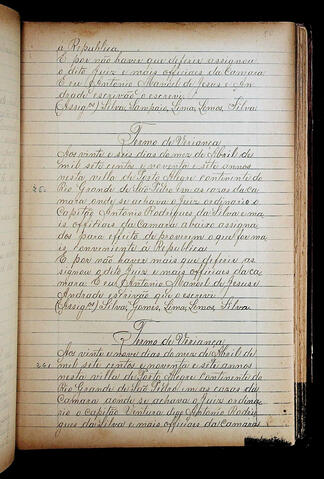 á Republica,
E por não haver que deferir assignou
o dito Juiz e mais officiaes da Camara
E eu Antonio Manoel de Jesus e An
drade escrivão o escrevi
(Assig.os) Silva, Sampaio, Lima, Lemos, Silva
Termo de Veriança
Aos vinte e seis dias do mez de Abril de
mil sete centos e noventa e sete annos
nesta villa de Porto Alegre Continente do
Rio Grande de São Pedro em as cazas da ca
mara onde se achava o Juiz ordinario o
Capitão Antonio Rodrigues da Silva e ma
is officiaes da Camara abaixo assigna
dos para effeito de proverem o que for ma
is conveniente á Republica
E por não haver mais que deferir as
signou o dito Juiz e mais officiaes da ca
mara. E eu Antonio Manoel de Jesus e
Andrade escrivão que o escrevi
(Assig.os) Silva, Gomes, Lima, Lemos, Silva
Termo de Veriança
Aos vinte e nove dias do mez de Abril de
mil sete centos e noventa e sete annos
nesta villa de Porto Alegre Continente do
Rio Grande de São Pedro em as cazas da
Camara aonde se achava o Juiz ordina
rio o capitão Ventura digo Antonio Rodri
gues da Silva e mais officiaes da Camara